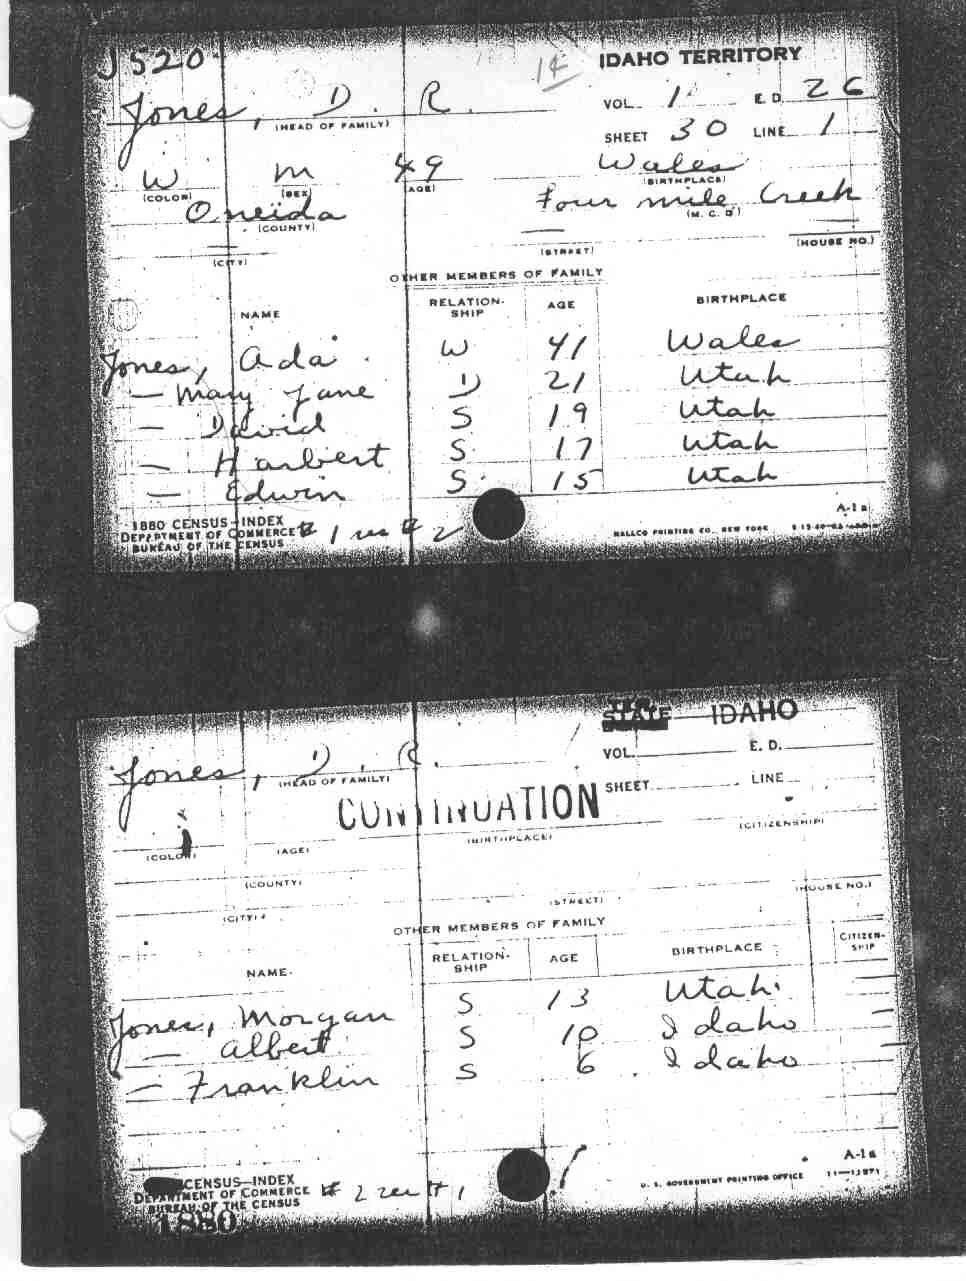 J520
14
IDAHO TERRITORY
Jones, D. R.
(HEAD OF FAMILY)
VOL. 1 E. D. 26
SHEET 30 LINE 1
W M 49 Wales
(COLOR) (SEX) (AGE) (BIRTHPLACE)
Oneida Four mile Creek
(COUNTY) (M. C. D.)
(CITY) (STREET) (HOUSE NO.)
OTHER MEMBERS OF FAMILY
NAME RELATION-SHIP AGE BIRTHPLACE
Jones, Ada W 41 Wales
— Mary Jane D 21 Utah
— David S 19 Utah
— Harbert S 17 Utah
— Edwin S 15 Utah
1880 CENSUS—INDEX
DEPARTMENT OF COMMERCE # 1 see # 2
BUREAU OF THE CENSUS
A-1a
MALLCO PRINTING CO., NEW YORK
STATE IDAHO
Jones, D. R.
(HEAD OF FAMILY)
VOL. E. D.
SHEET LINE
CONTINUATION
(COLOR) (AGE) (BIRTHPLACE) (CITIZENSHIP)
(COUNTY)
(CITY) (STREET) (HOUSE NO.)
OTHER MEMBERS OF FAMILY
NAME RELATION-SHIP AGE BIRTHPLACE CITIZEN-SHIP
Jones, Morgan S 13 Utah
— Albert S 10 Idaho
— Franklin S 6 Idaho
CENSUS—INDEX
DEPARTMENT OF COMMERCE # 2 see # 1
BUREAU OF THE CENSUS
1880
A-1a
U. S. GOVERNMENT PRINTING OFFICE